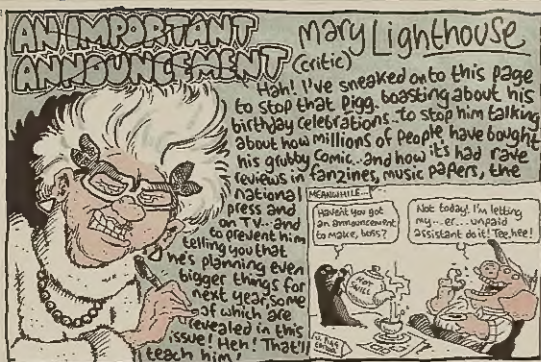 AN IMPORTANT
ANNOUNCEMENT
Mary Lighthouse
(critic)
Hah! I've sneaked onto this page
to stop that Pigg. boasting about his
birthday celebrations..to stop him talking
about how millions of people have bought
his grubby comic...and how it's had rave
reviews in fanzines, music papers, the
national
press and
on TV...and
to prevent him
telling you that
he's planning even
bigger things for
next year, some
of which are
revealed in this
issue! Heh! That'll
teach him!
MEANWHILE...
Haven't you got
an announcement
to make, boss?
Not today! I'm letting
my...er... unpaid
assistant do it! Tee, hee!